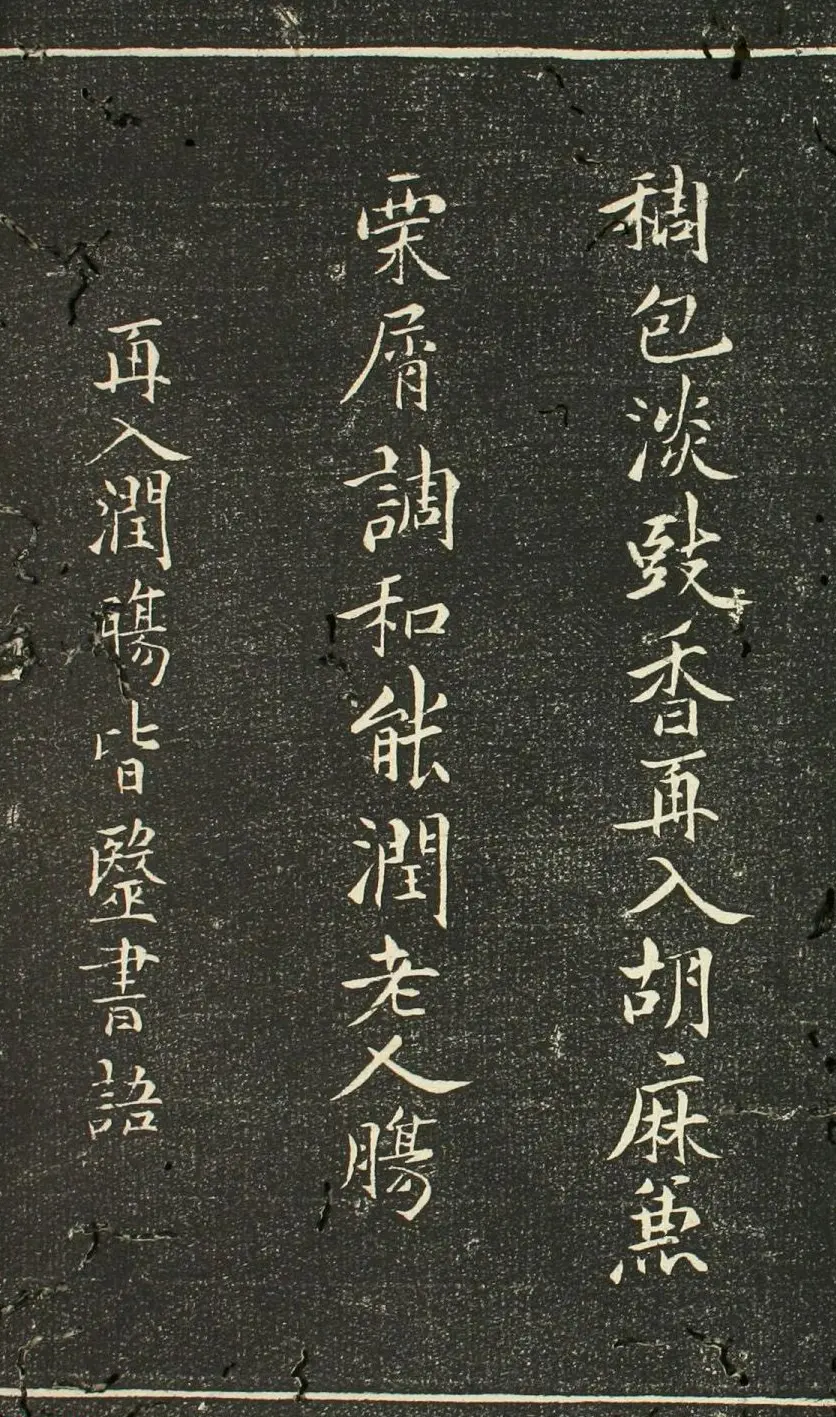 稠包淡豉香再入胡麻兼
栗屑調和能潤老人腸
再入潤腸皆毉書語